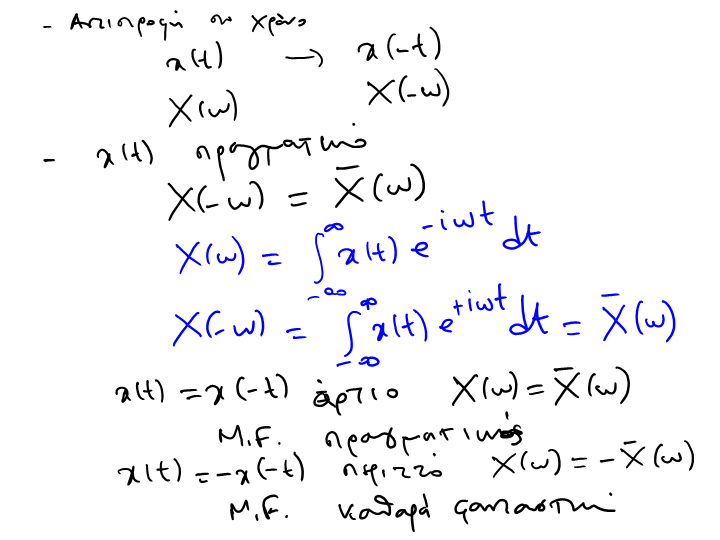 - Αντιστροφή στο χρόνο
x(t) → x(-t)
X(ω) X(-ω)
- x(t) πραγματικό
X(-ω) = X̄(ω)
X(ω) = ∫_{-∞}^{∞} x(t) e^{-iωt} dt
X(-ω) = ∫_{-∞}^{∞} x(t) e^{+iωt} dt = X̄(ω)
x(t) = x(-t) άρτιο X(ω) = X̄(ω)
M.F. πραγματικός
x(t) = -x(-t) περιττό X(ω) = -X̄(ω)
M.F. καθαρά φανταστικό